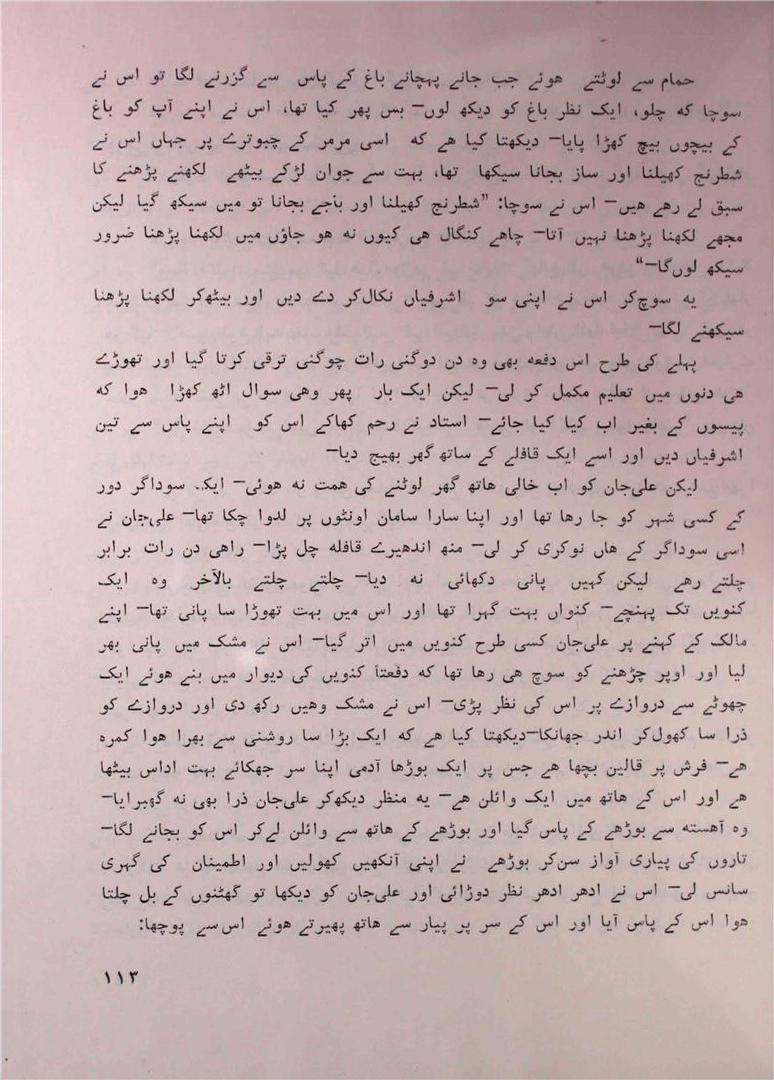 حمام سے لوٹتے ھوئے جب جانے پہچانے باغ کے پاس سے گزرنے لگا تو اس نے
سوچا که چلو، ایک نظر باغ کو دیکھ لوں— بس پھر کیا تھا، اس نے اپنے آپ کو باغ
کے بیچوں بیچ کھڑا پایا— دیکھتا کیا ھے که اسی مرمر کے چبوترے پر جہاں اس نے
شطرنج کھیلنا اور ساز بجانا سیکھا تھا، بہت سے جوان لڑکے بیٹھے لکھنے پڑھنے کا
سبق لے رھے ھیں— اس نے سوچا: ”شطرنج کھیلنا اور باجے بجانا تو میں سیکھ گیا لیکن
مجھے لکھنا پڑھنا نہیں آتا— چاھے کنگال ھی کیوں نه ھو جاؤں میں لکھنا پڑھنا ضرور
سیکھ لوں‌گا—“
یه سوچ‌کر اس نے اپنی سو اشرفیاں نکال‌کر دے دیں اور بیٹھ‌کر لکھنا پڑھنا
سیکھنے لگا—
پہلے کی طرح اس دفعه بھی وہ دن دوگنی رات چوگنی ترقی کرتا گیا اور تھوڑے
ھی دنوں میں تعلیم مکمل کر لی— لیکن ایک بار پھر وھی سوال اٹھ کھڑا ھوا که
پیسوں کے بغیر اب کیا کیا جائے— استاد نے رحم کھاکے اس کو اپنے پاس سے تین
اشرفیاں دیں اور اسے ایک قافلے کے ساتھ گھر بھیج دیا—
لیکن علی‌جان کو اب خالی ھاتھ گھر لوٹنے کی ھمت نه ھوئی— ایک سوداگر دور
کے کسی شہر کو جا رھا تھا اور اپنا سارا سامان اونٹوں پر لدوا چکا تھا— علی‌جان نے
اسی سوداگر کے ھاں نوکری کر لی— منھ اندھیرے قافله چل پڑا— راھی دن رات برابر
چلتے رھے لیکن کہیں پانی دکھائی نه دیا— چلتے چلتے بالآخر وہ ایک
کنویں تک پہنچے— کنواں بہت گہرا تھا اور اس میں بہت تھوڑا سا پانی تھا— اپنے
مالک کے کہنے پر علی‌جان کسی طرح کنویں میں اتر گیا— اس نے مشک میں پانی بھر
لیا اور اوپر چڑھنے کو سوچ ھی رھا تھا که دفعتاً کنویں کی دیوار میں بنے ھوئے ایک
چھوٹے سے دروازے پر اس کی نظر پڑی— اس نے مشک وھیں رکھ دی اور دروازے کو
ذرا سا کھول‌کر اندر جھانکا—دیکھتا کیا ھے که ایک بڑا سا روشنی سے بھرا ھوا کمرہ
ھے— فرش پر قالین بچھا ھے جس پر ایک بوڑھا آدمی اپنا سر جھکائے بہت اداس بیٹھا
ھے اور اس کے ھاتھ میں ایک وائلن ھے— یه منظر دیکھ‌کر علی‌جان ذرا بھی نه گھبرایا—
وہ آھسته سے بوڑھے کے پاس گیا اور بوڑھے کے ھاتھ سے وائلن لے‌کر اس کو بجانے لگا—
تاروں کی پیاری آواز سن‌کر بوڑھے نے اپنی آنکھیں کھولیں اور اطمینان کی گہری
سانس لی— اس نے ادھر ادھر نظر دوڑائی اور علی‌جان کو دیکھا تو گھٹنوں کے بل چلتا
ھوا اس کے پاس آیا اور اس کے سر پر پیار سے ھاتھ پھیرتے ھوئے اس‌سے پوچھا:
۱۱۳